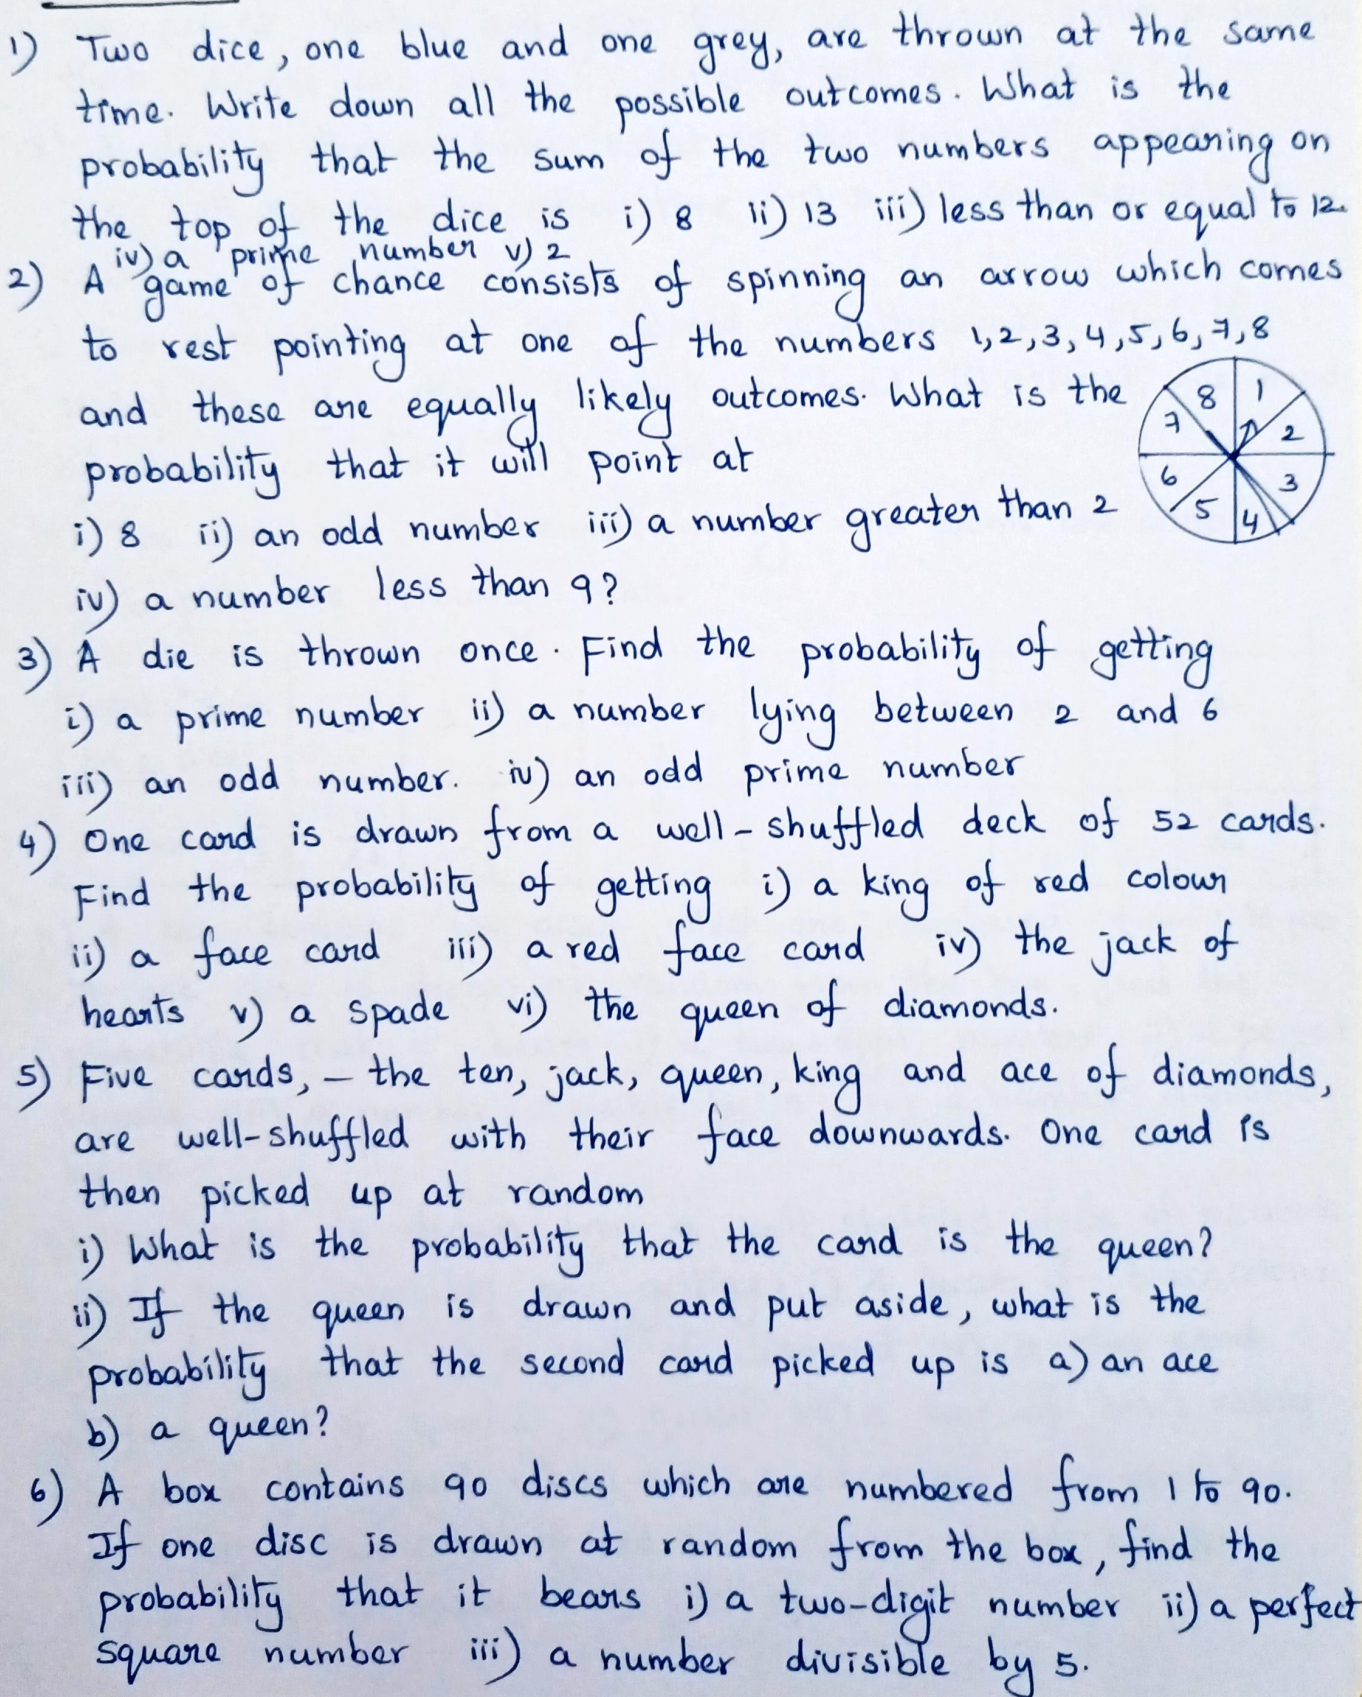 1) Two dice, one blue and one grey, are thrown at the same
time. Write down all the possible outcomes. What is the
probability that the sum of the two numbers appearing on
the top of the dice is i) 8 ii) 13 iii) less than or equal to 12.
iv) a prime number v) 2
2) A game of chance consists of spinning an arrow which comes
to rest pointing at one of the numbers 1,2,3,4,5,6,7,8
and these are equally likely outcomes. What is the
probability that it will point at
i) 8 ii) an odd number iii) a number greater than 2
iv) a number less than 9?
8 1
7 2
6 3
5 4
3) A die is thrown once. Find the probability of getting
i) a prime number ii) a number lying between 2 and 6
iii) an odd number. iv) an odd prime number
4) One card is drawn from a well-shuffled deck of 52 cards.
Find the probability of getting i) a king of red colour
ii) a face card iii) a red face card iv) the jack of
hearts v) a spade vi) the queen of diamonds.
5) Five cards, – the ten, jack, queen, king and ace of diamonds,
are well-shuffled with their face downwards. One card is
then picked up at random
i) What is the probability that the card is the queen?
ii) If the queen is drawn and put aside, what is the
probability that the second card picked up is a) an ace
b) a queen?
6) A box contains 90 discs which are numbered from 1 to 90.
If one disc is drawn at random from the box, find the
probability that it bears i) a two-digit number ii) a perfect
square number iii) a number divisible by 5.